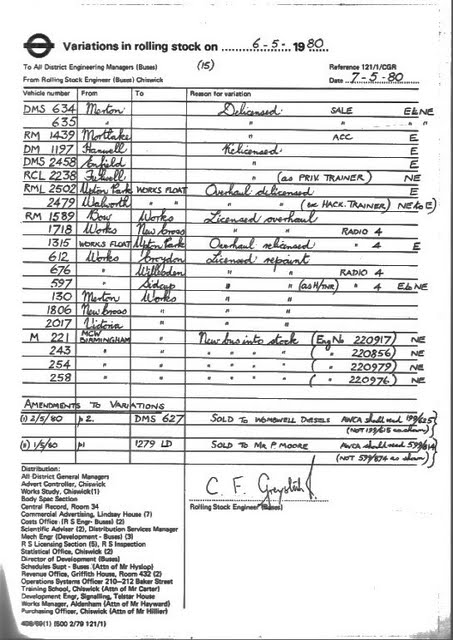 Variations in rolling stock on 6-5-1980
To All District Engineering Managers (Buses) (15) Reference 121/1/CGR
From Rolling Stock Engineer (Buses) Chiswick Date 7-5-80
Vehicle number From To Reason for variation
DMS 634 Merton Delicensed SALE E&NE
635 " " " " "
RM 1439 Mortlake " ACC E
DM 1197 Hanwell Relicensed E
DMS 2458 Enfield " E
RCL 2238 Fulwell " (as PRIV. TRAINER) NE
RML 2502 Upton Park WORKS FLOAT Overhaul delicensed E
2479 Walworth " " " " (ex HACK. TRAINER) NE to E
RM 1589 Bow Works Licensed overhaul
1718 Works New Cross " " RADIO 4
1315 WORKS FLOAT Upton Park Overhaul relicensed " 4 E
612 Works Croydon Licensed repaint
676 " Willesden " " RADIO 4
597 " Sidcup " " " 4 E&NE
130 Merton Works " "
1806 New Cross " " "
2017 Victoria " " "
M 221 MCW BIRMINGHAM New bus into stock (Eng No 220917) NE
243 " " " " " ( " 220856) NE
254 " " " " " ( " 220979) NE
258 " " " " " ( " 220976) NE
AMENDMENTS TO VARIATIONS
(i) 2/5/80 p2. DMS 627 SOLD TO WOMBWELL DIESELS AWCA should read 199/625
(NOT 199/615 as shown)
(ii) 1/5/80 p1 1279 LD SOLD TO MR P. MOORE AWCA should read 599/614
(NOT 599/674 as shown)
Distribution:
All District General Managers
Advert Controller, Chiswick
Works Study, Chiswick(1)
Body Spec Section
Central Record, Room 34
Commercial Advertising, Lindsay House (7)
Costs Office (R S Engr- Buses) (2)
Scientific Adviser (2), Distribution Services Manager
Mech Engr (Development - Buses) (3)
R S Licensing Section (5), R S Inspection
Statistical Office, Chiswick (2)
Director of Development (Buses)
Schedules Supt - Buses (Attn of Mr Hyslop)
Revenue Office, Griffith House, Room 432 (2)
Operations Systems Officer 210-212 Baker Street
Training School, Chiswick (Attn of Mr Carter)
Development Engr, Signalling, Telstar House
Works Manager, Aldenham (Attn of Mr Hayward)
Purchasing Officer, Chiswick (Attn of Mr Hillier)
C. F.
Rolling Stock Engineer (Buses)
(1) (500 2/79 121/1)